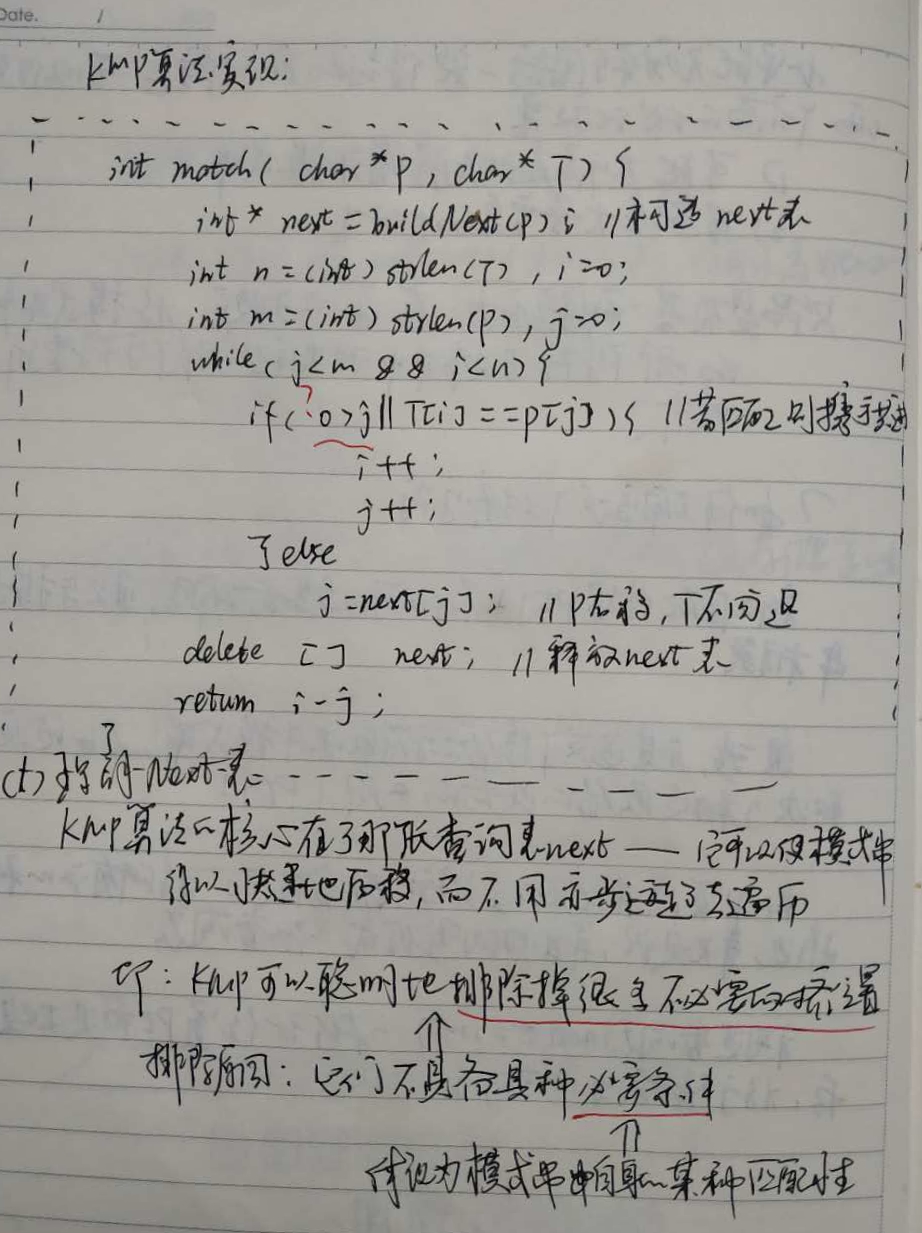 Date. /
KMP算法实现:
int match( char *P, char* T) {
int* next = buildNext(P); //构造next表
int n = (int) strlen(T), i=0;
int m = (int) strlen(P), j=0;
while( j<m && i<n) {
?
if( 0>j || T[i] == P[j] ) { //若匹配则携手共进
i++;
j++;
} else
j=next[j]; //P右移,T不回退
delete [] next; //释放next表
return i-j;
}
Next表
KMP算法的核心在于那张查询表next —— 它可以使模式串
得以快速地后移,而不用亦步亦趋去遍历
即: KMP可以聪明地排除掉很多不必要的对齐位置
排除原因: 它们不具备某种必要条件
体现为模式串自身的某种匹配性